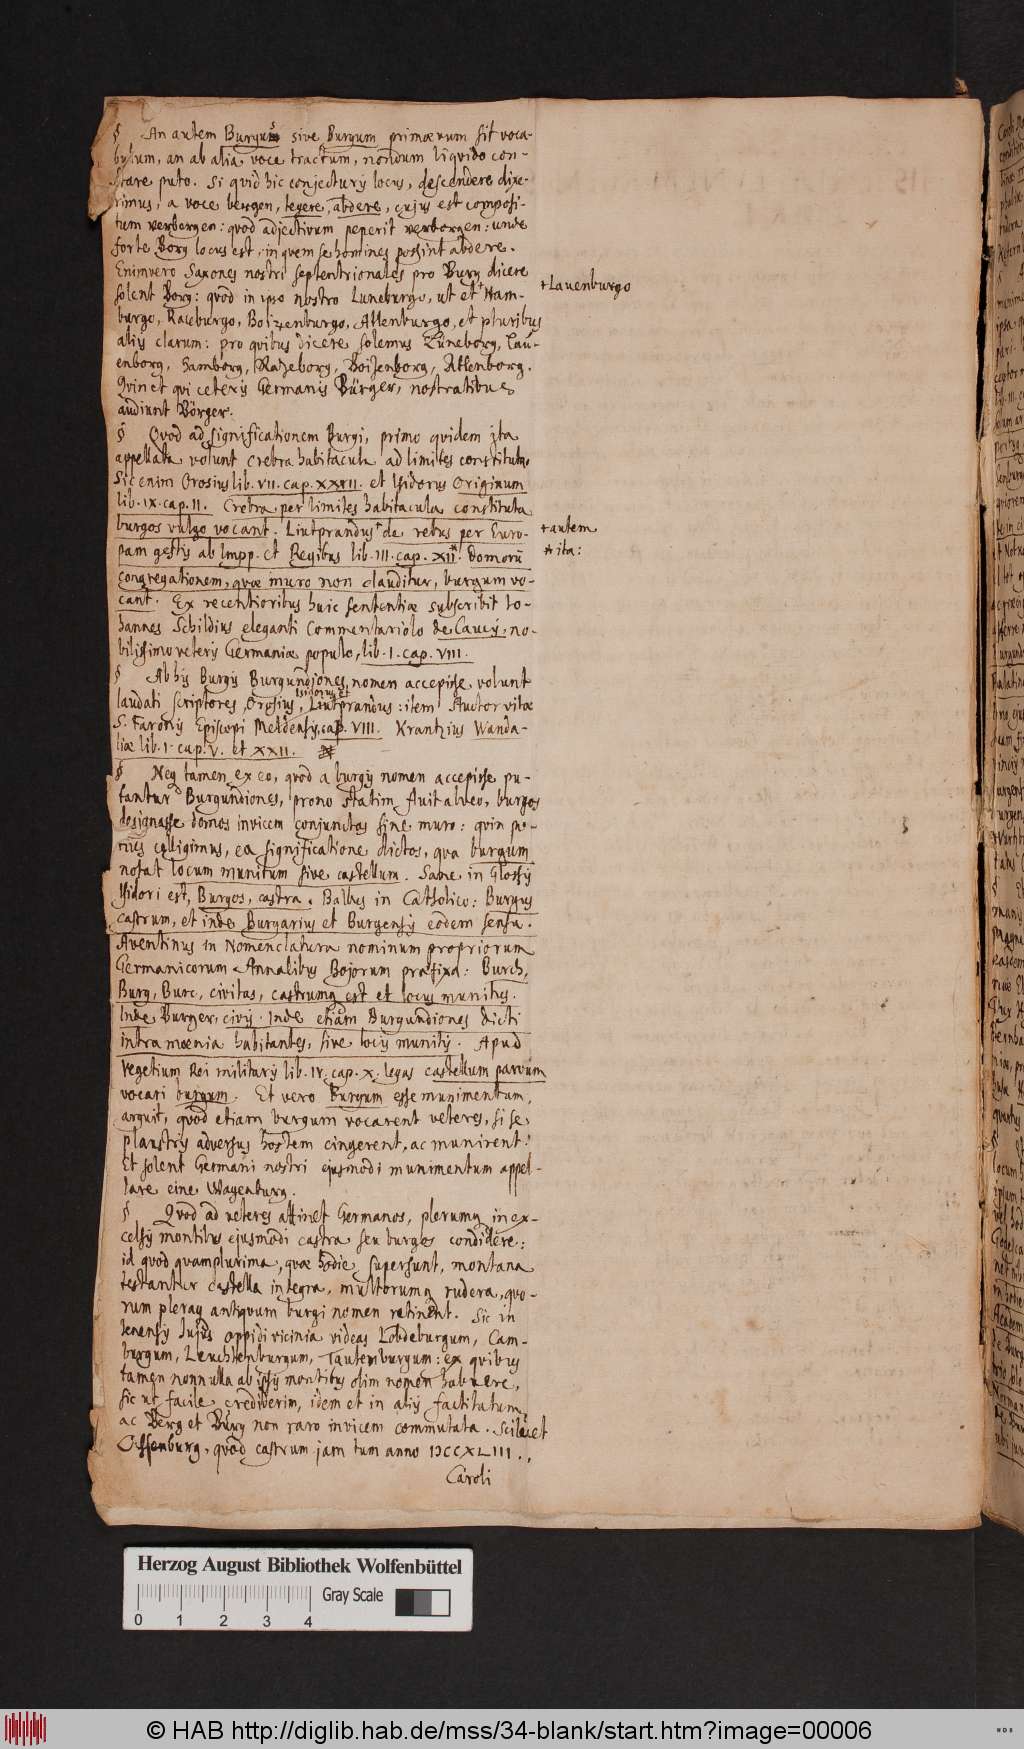 § An autem Burgus sive Burgum primævum sit voca-
bulum, an ab alia voce tractum, nondum liqvido con-
stare puto. Si qvid hic conjecturis locus, descendere dixe-
rimus, a voce bergen, tegere, abdere, cujus est composi-
tum verbergen: qvod adjectivum peperit verborgen: unde
forte Borg locus est, in qvem se homines possint abdere.
Enimvero Saxones nostri septentrionales pro Burg dicere
solent Borg: qvod in ipso nostro Luneburgo, ut et + Ham-
burgo, Raceburgo, Boizenburgo, Altenburgo, et pluribus
aliis clarum: pro qvibus dicere solemus Lüneborg, Lau-
enborg, Hamborg, Ratzeborg, Boitzenborg, Altenborg.
Qvin et qvi ceteris Germanis Bürger, nostratibus
audiunt Börger.
+ Lauenburgo
§ Qvod ad significationem Burgi, primo qvidem ita
appellata volunt crebra habitacula ad limites constituta.
Sic enim Orosius lib. VII. cap. XXXII. et Isidorus Originum
lib. IX. cap. II. Crebra per limites habitacula constituta
burgos vulgo vocant. Liutprandus + de rebus per Euro-
pam gestis ab Impp. et Regibus lib. III. cap. XII. * Domorū
congregationem, qvæ muro non clauditur, burgum vo-
cant. Ex recentioribus huic sententiæ subscribit Io-
hannes Schildius eleganti Commentariolo de Caucis, no-
bilissimo veteris Germaniæ populo, lib. I. cap. VIII.
+ autem
* ita:
§ Ab his Burgis Burgundiones nomen accepisse, volunt
laudati scriptores, Orosius, Isidorus et Liutprandus: item Auctor vitæ
S. Faronis Episcopi Meldensis, cap. VIII. Krantzius Wanda-
liæ lib. I. cap. V. et XXII.
§ Neq tamen ex eo, qvod a burgis nomen accepisse pu-
tantur Burgundiones, prono statim fluit alveo, burgos
designasse domos invicem conjunctas sine muro: qvin po-
tius colligimus, ea significatione dictos, qva burgum
notat locum munitum sive castellum. Sane in Glossis
Isidori est, Burgos, castra. Balbus in Catholico: Burgus
castrum, et inde Burgarius et Burgensis eodem sensu.
Aventinus in Nomenclatura nominum propriorum
Germanicorum Annalibus Bojorum præfixa: Burch,
Burg, Burc, civitas, castrumq est et locus munitus.
Inde Burger, civis. Inde etiam Burgundiones dicti
intra mœnia habitantes, sive locis munitis. Apud
Vegetium Rei militaris lib. IV. cap. X. legas castellum parvum
vocari burgum. Et vero Burgum esse munimentum,
arguit, qvod etiam burgum vocarent veteres, si se
plaustris adversus hostem cingerent, ac munirent.
Et solent Germani nostri ejusmodi munimentum appel-
lare eine Wagenburg.
§ Qvod ad veteres attinet Germanos, plerumq in ex-
celsis montibus ejusmodi castra seu burgos condidere:
id qvod qvamplurima, qvæ hodie supersunt, montana
testantur castella integra, multorumq rudera, qvo-
rum pleraq antiqvum burgi nomen retinent. Sic in
Ienensis hujus oppidi vicinia videas Lobdeburgum, Cam-
burgum, Leuchtenburgum, Tautenburgum: ex qvibus
tamen nonnulla ab ipsis montibus olim nomen habuere,
sic ut facile crediderim, idem et in aliis factitatum,
ac Berg et Burg non raro invicem commutata. Scilicet
Ochsenburg, qvod castrum jam tum anno DCCXLIII.
Caroli
Herzog August Bibliothek Wolfenbüttel
Gray Scale
0 1 2 3 4
© HAB http://diglib.hab.de/mss/34-blank/start.htm?image=00006